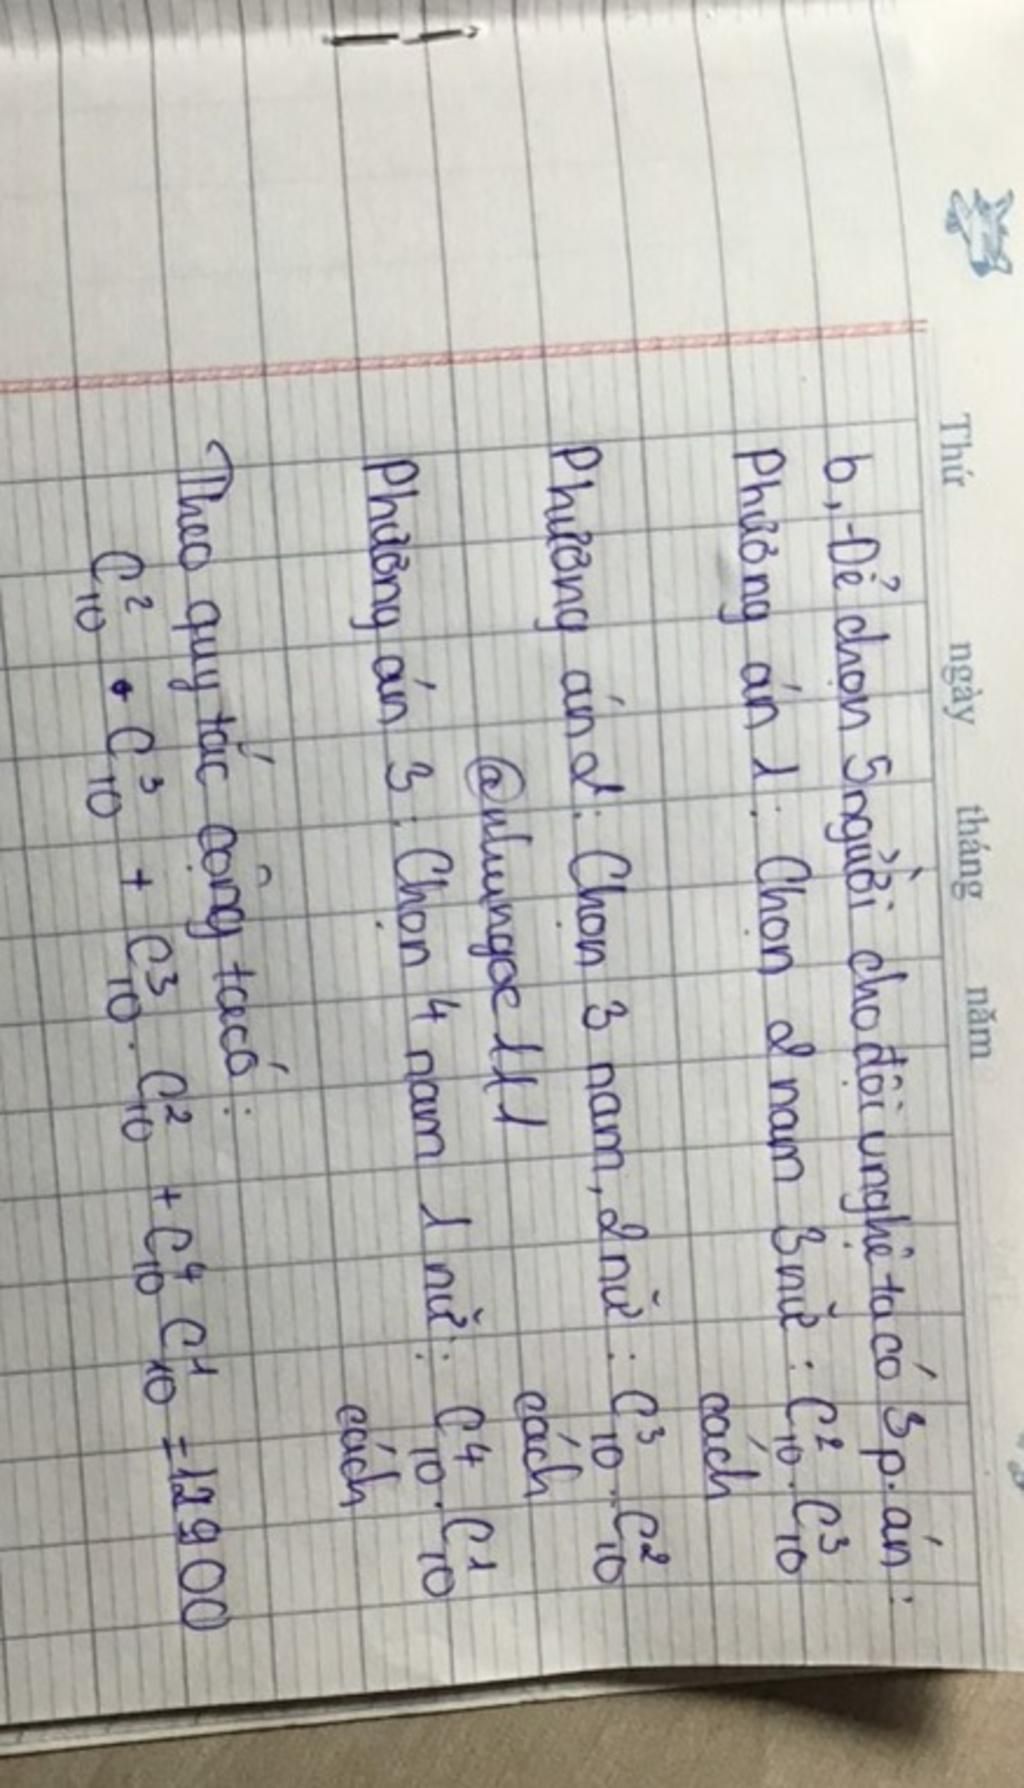 Thứ ngày tháng năm
b, Để chọn 5 người cho đội v nghệ ta có 3 p. án :
Phương án 1 : Chọn 2 nam 3 nữ : C²₁₀ . C³₁₀
cách
Phương án 2 : Chọn 3 nam, 2 nữ : C³₁₀ . C²₁₀
cách
@nhungoc111
Phương án 3 : Chọn 4 nam 1 nữ : C⁴₁₀ . C¹₁₀
cách
Theo quy tắc cộng ta có :
C²₁₀ . C³₁₀ + C³₁₀ . C²₁₀ + C⁴₁₀ C¹₁₀ = 12900